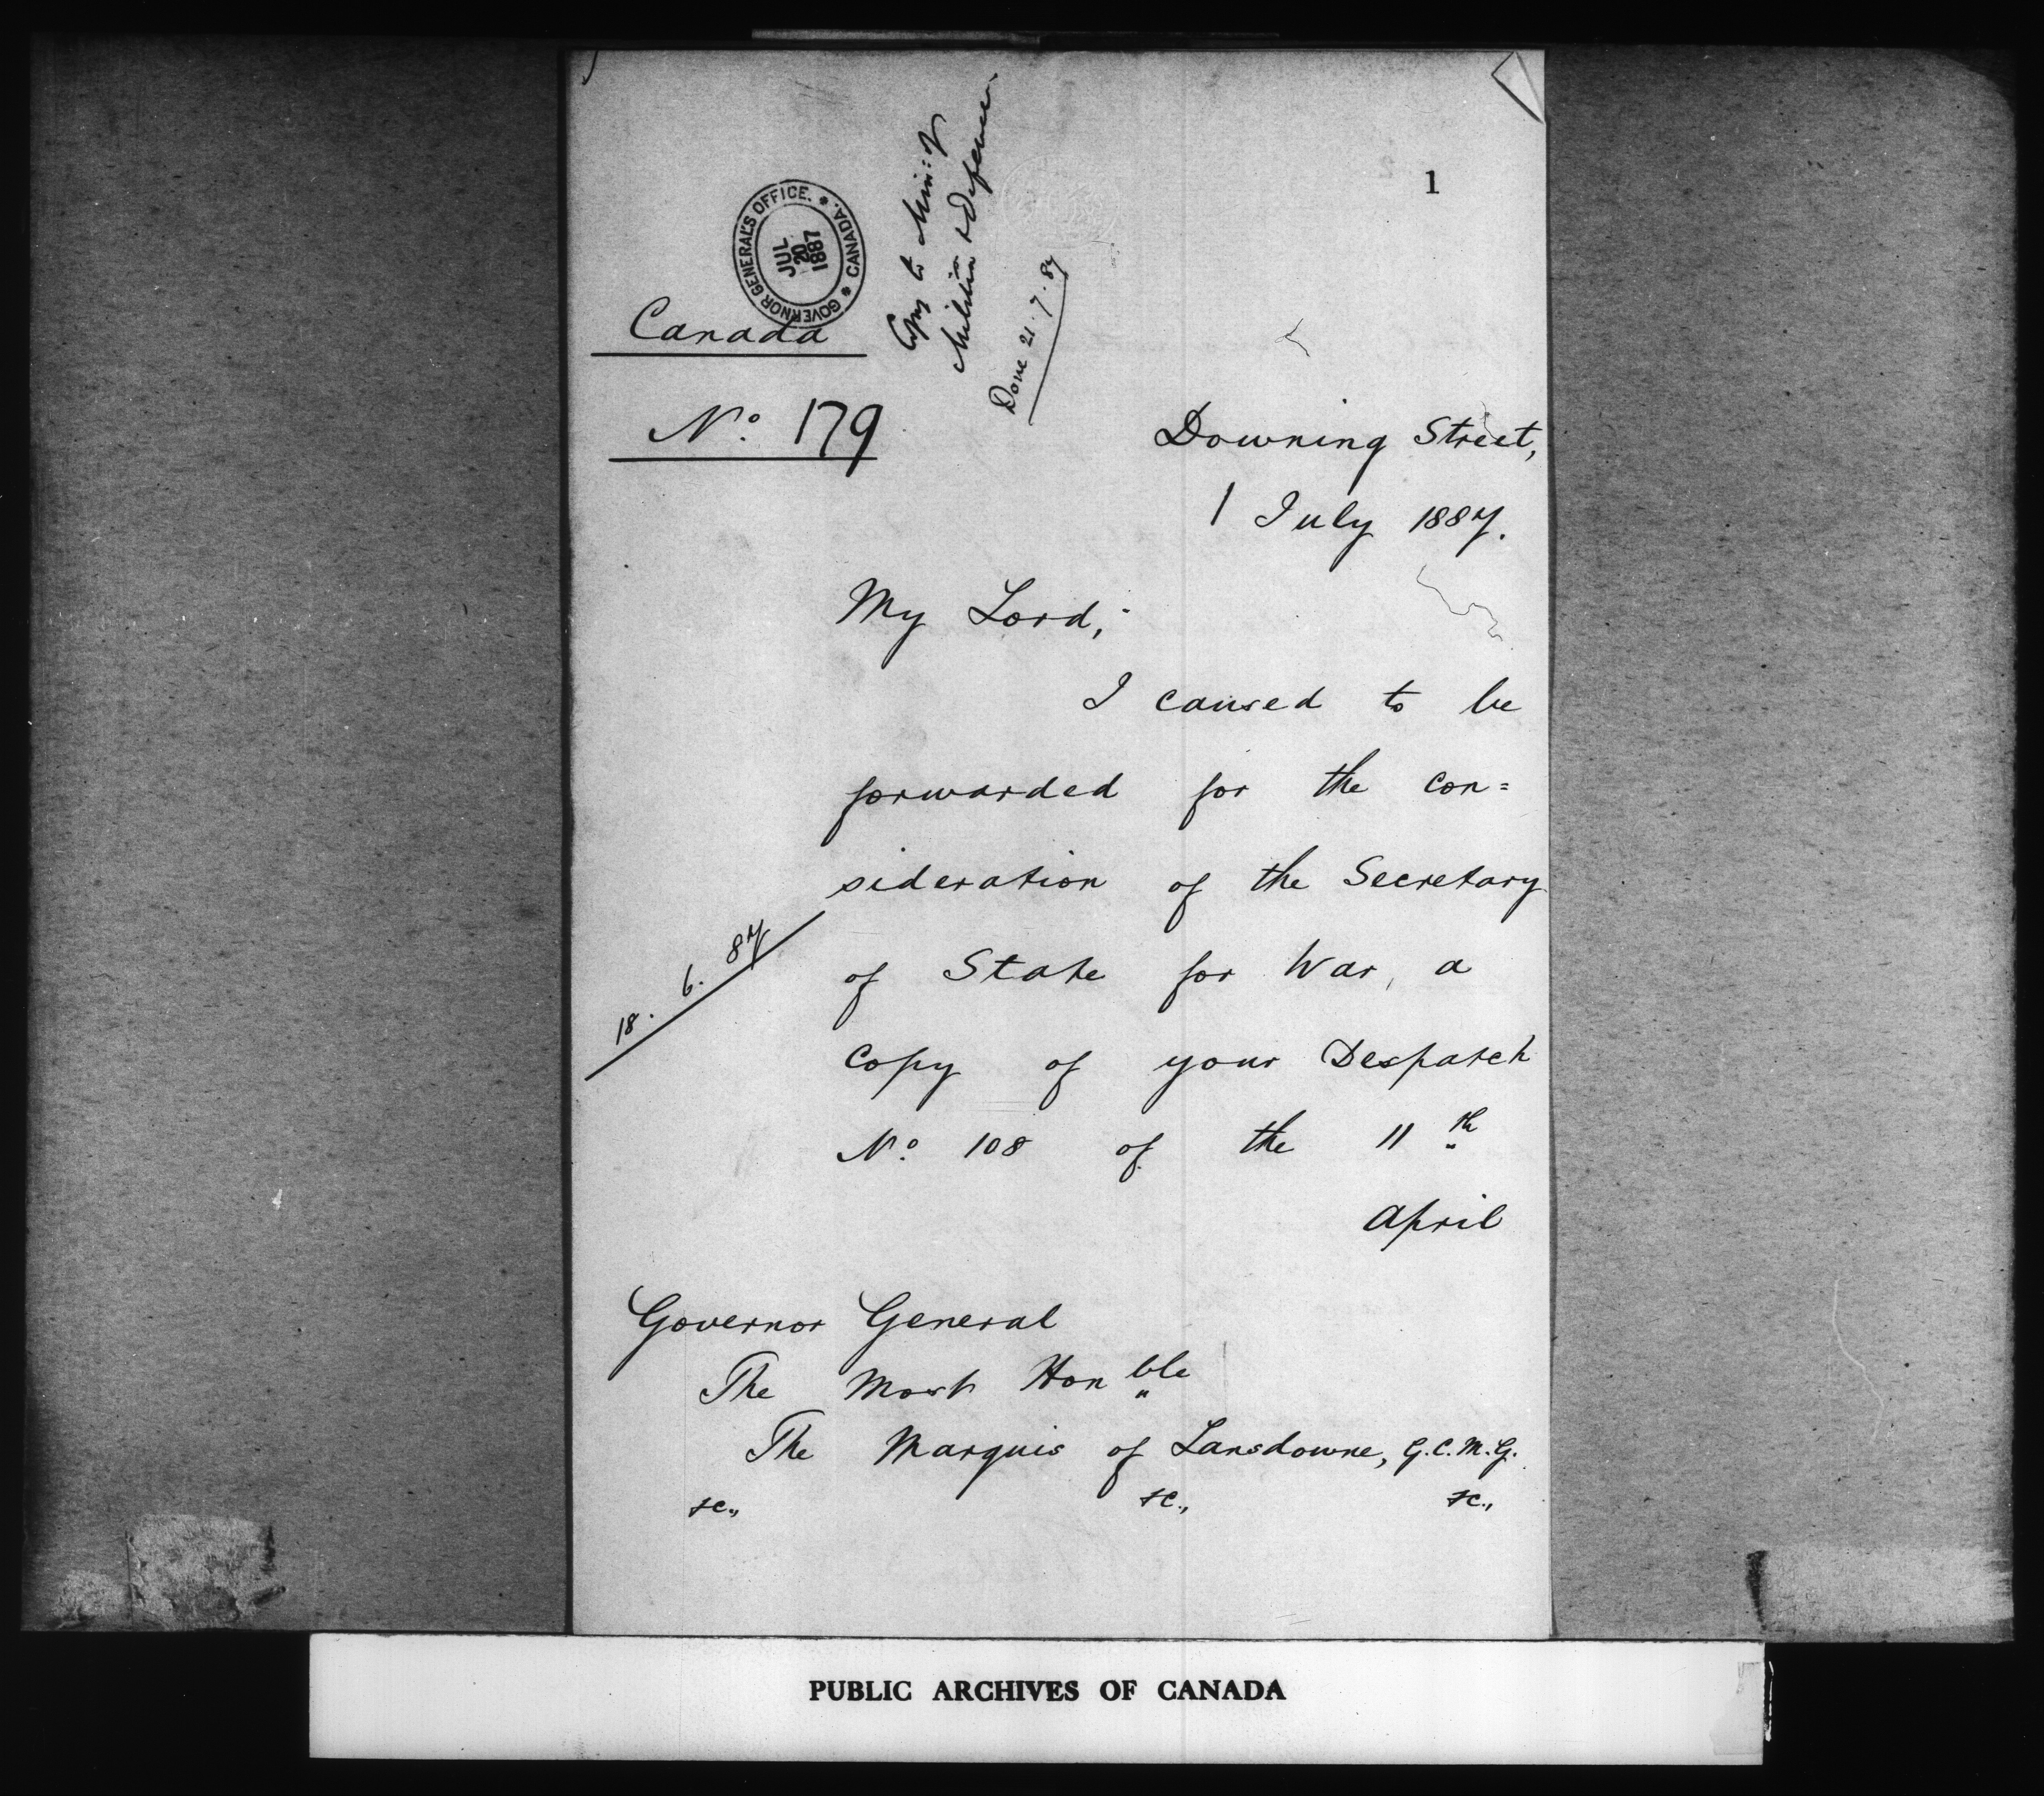 1
GOVERNOR GENERAL'S OFFICE. * CANADA. *
JUL
20
1887
Copy to Min: of
Militia & Defence.
Done 21.7.87
Canada
No. 179
Downing Street,
1 July 1887.
My Lord,
I caused to be
forwarded for the con=
sideration of the Secretary
18. 6. 87
of State for War, a
copy of your Despatch
No. 108 of the 11th
April
Governor General
The Most Honble
The Marquis of Lansdowne, G.C.M.G.
&c., &c., &c.,
PUBLIC ARCHIVES OF CANADA